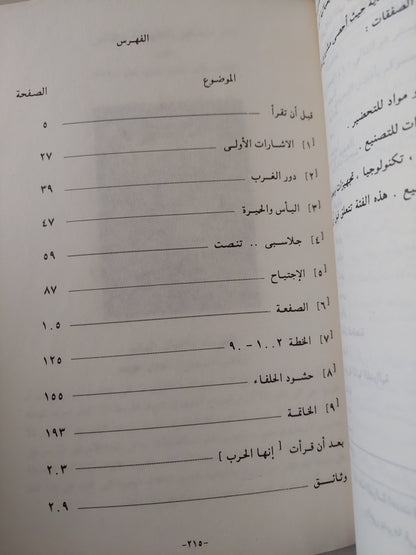 الفهرس
الموضوع الصفحة
قبل أن تقرأ ٥
[١] الاشارات الأولى ٢٧
[٢] دور الغرب ٣٩
[٣] اليأس والحيرة ٤٧
[٤] جلاسبى .. تنصت ٥٩
[٥] الإجتياح ٨٧
[٦] الصفعة ١٠٥
[٧] الخطة ١٠٠٢ - ٩٠ ١٢٥
[٨] حشود الحلفاء ١٥٥
[٩] الخاتمة ١٩٣
بعد أن قرأت [ إنها الحرب ] ٢٠٣
وثائق ٢٠٩
-٢١٥-
الصفقات :
مواد للتحضير .
للتصنيع .
، تكنولوجيا ، تجهيزات
. هذه الفئة تتعلق